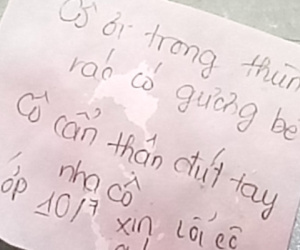 Cô ơi trong thùn
rác có gương bể
Cô cẩn thẩn đứt tay
nha cô
ớp 10/7 xin lỗi cô